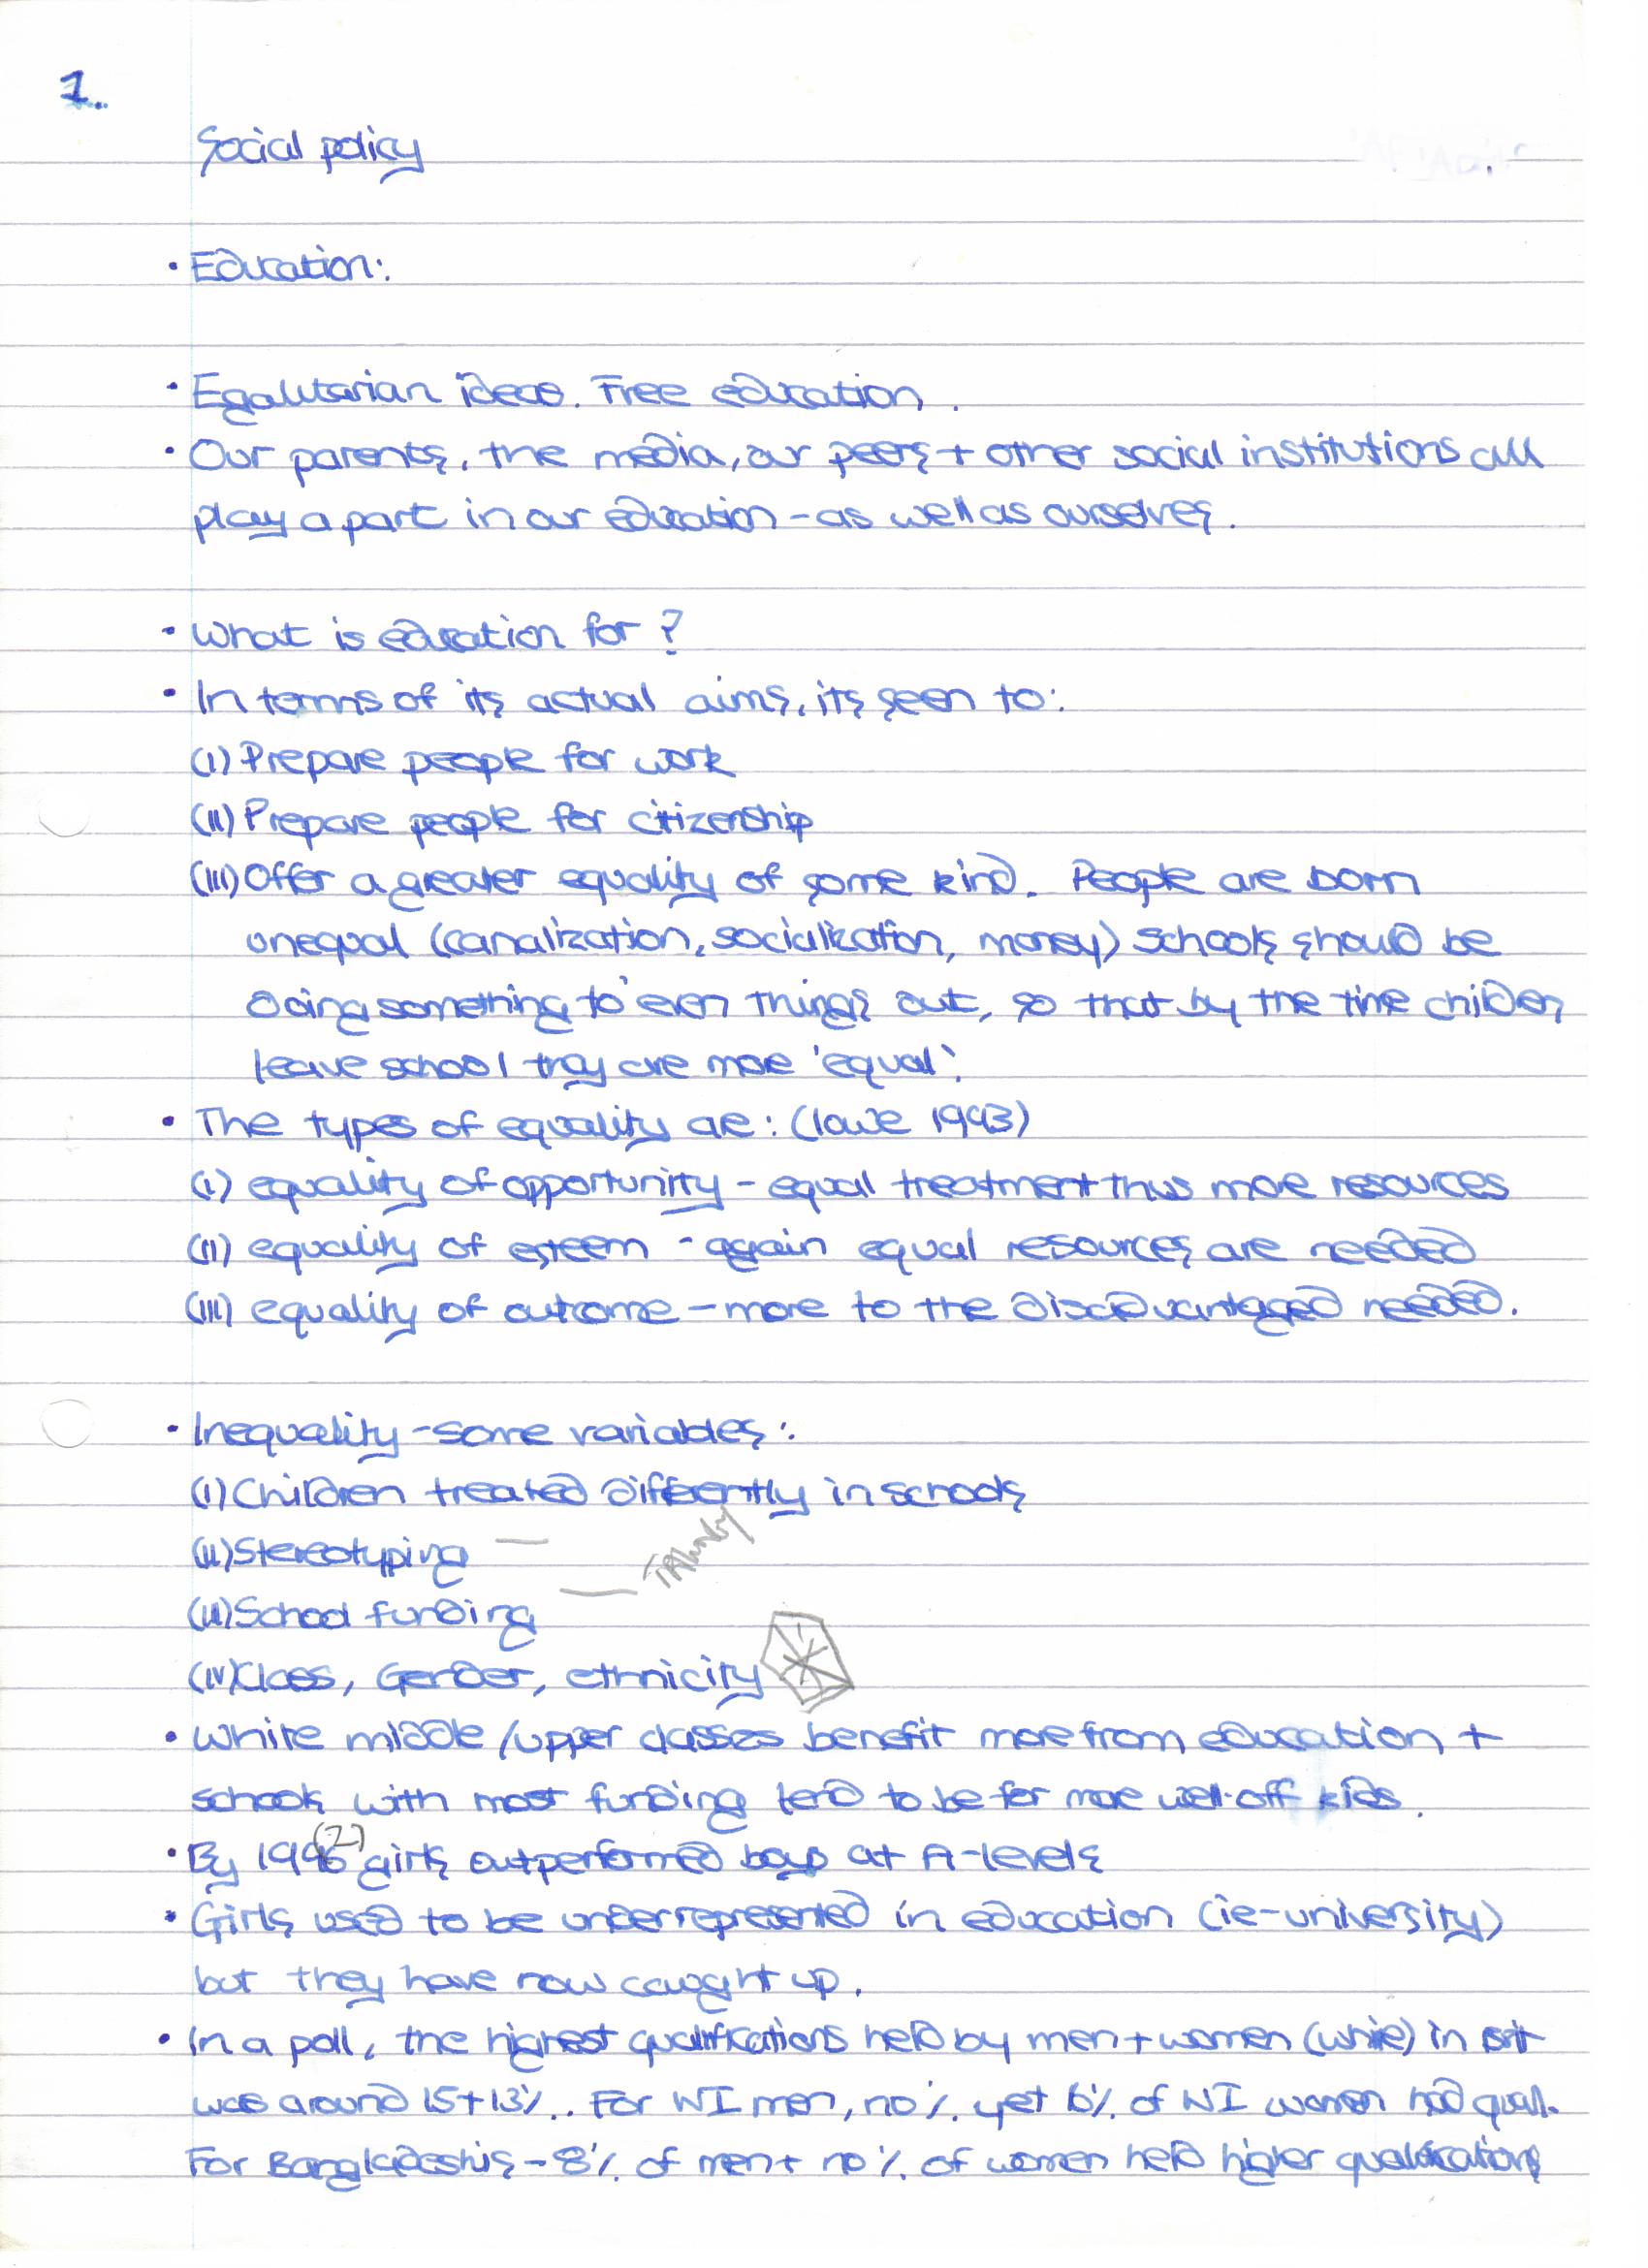 1.
Social policy
• Education:
• Egalitarian ideas. Free education.
• Our parents, the media, our peers + other social institutions all
play a part in our education - as well as ourselves.
• What is education for?
• In terms of its actual aims, its seen to:
(i) Prepare people for work
(ii) Prepare people for citizenship
(iii) Offer a greater equality of some kind. People are born
unequal (canalization, socialization, money) schools should be
doing something to even things out, so that by the time children
leave school they are more 'equal'.
• The types of equality are: ( 1993)
(i) equality of opportunity - equal treatment thus more resources
(ii) equality of esteem - again equal resources are needed
(iii) equality of outcome - more to the disadvantaged needed.
• Inequality - some variables:
(i) Children treated differently in schools
(ii) Stereotyping
(iii) School funding
(iv) Class, Gender, ethnicity
• White middle/upper classes benefit more from education +
schools with most funding tend to be for more well-off kids.
• By (2) girls outperformed boys at A-levels
• Girls used to be underrepresented in education (ie-university)
but they have now caught up.
• In a poll, the highest qualifications held by men + women (white) in
was around 15 + 13%.. For WI men, no %. yet % of WI women had qual.
For Bangladeshis - 8% of men + no % of women held higher qualifications